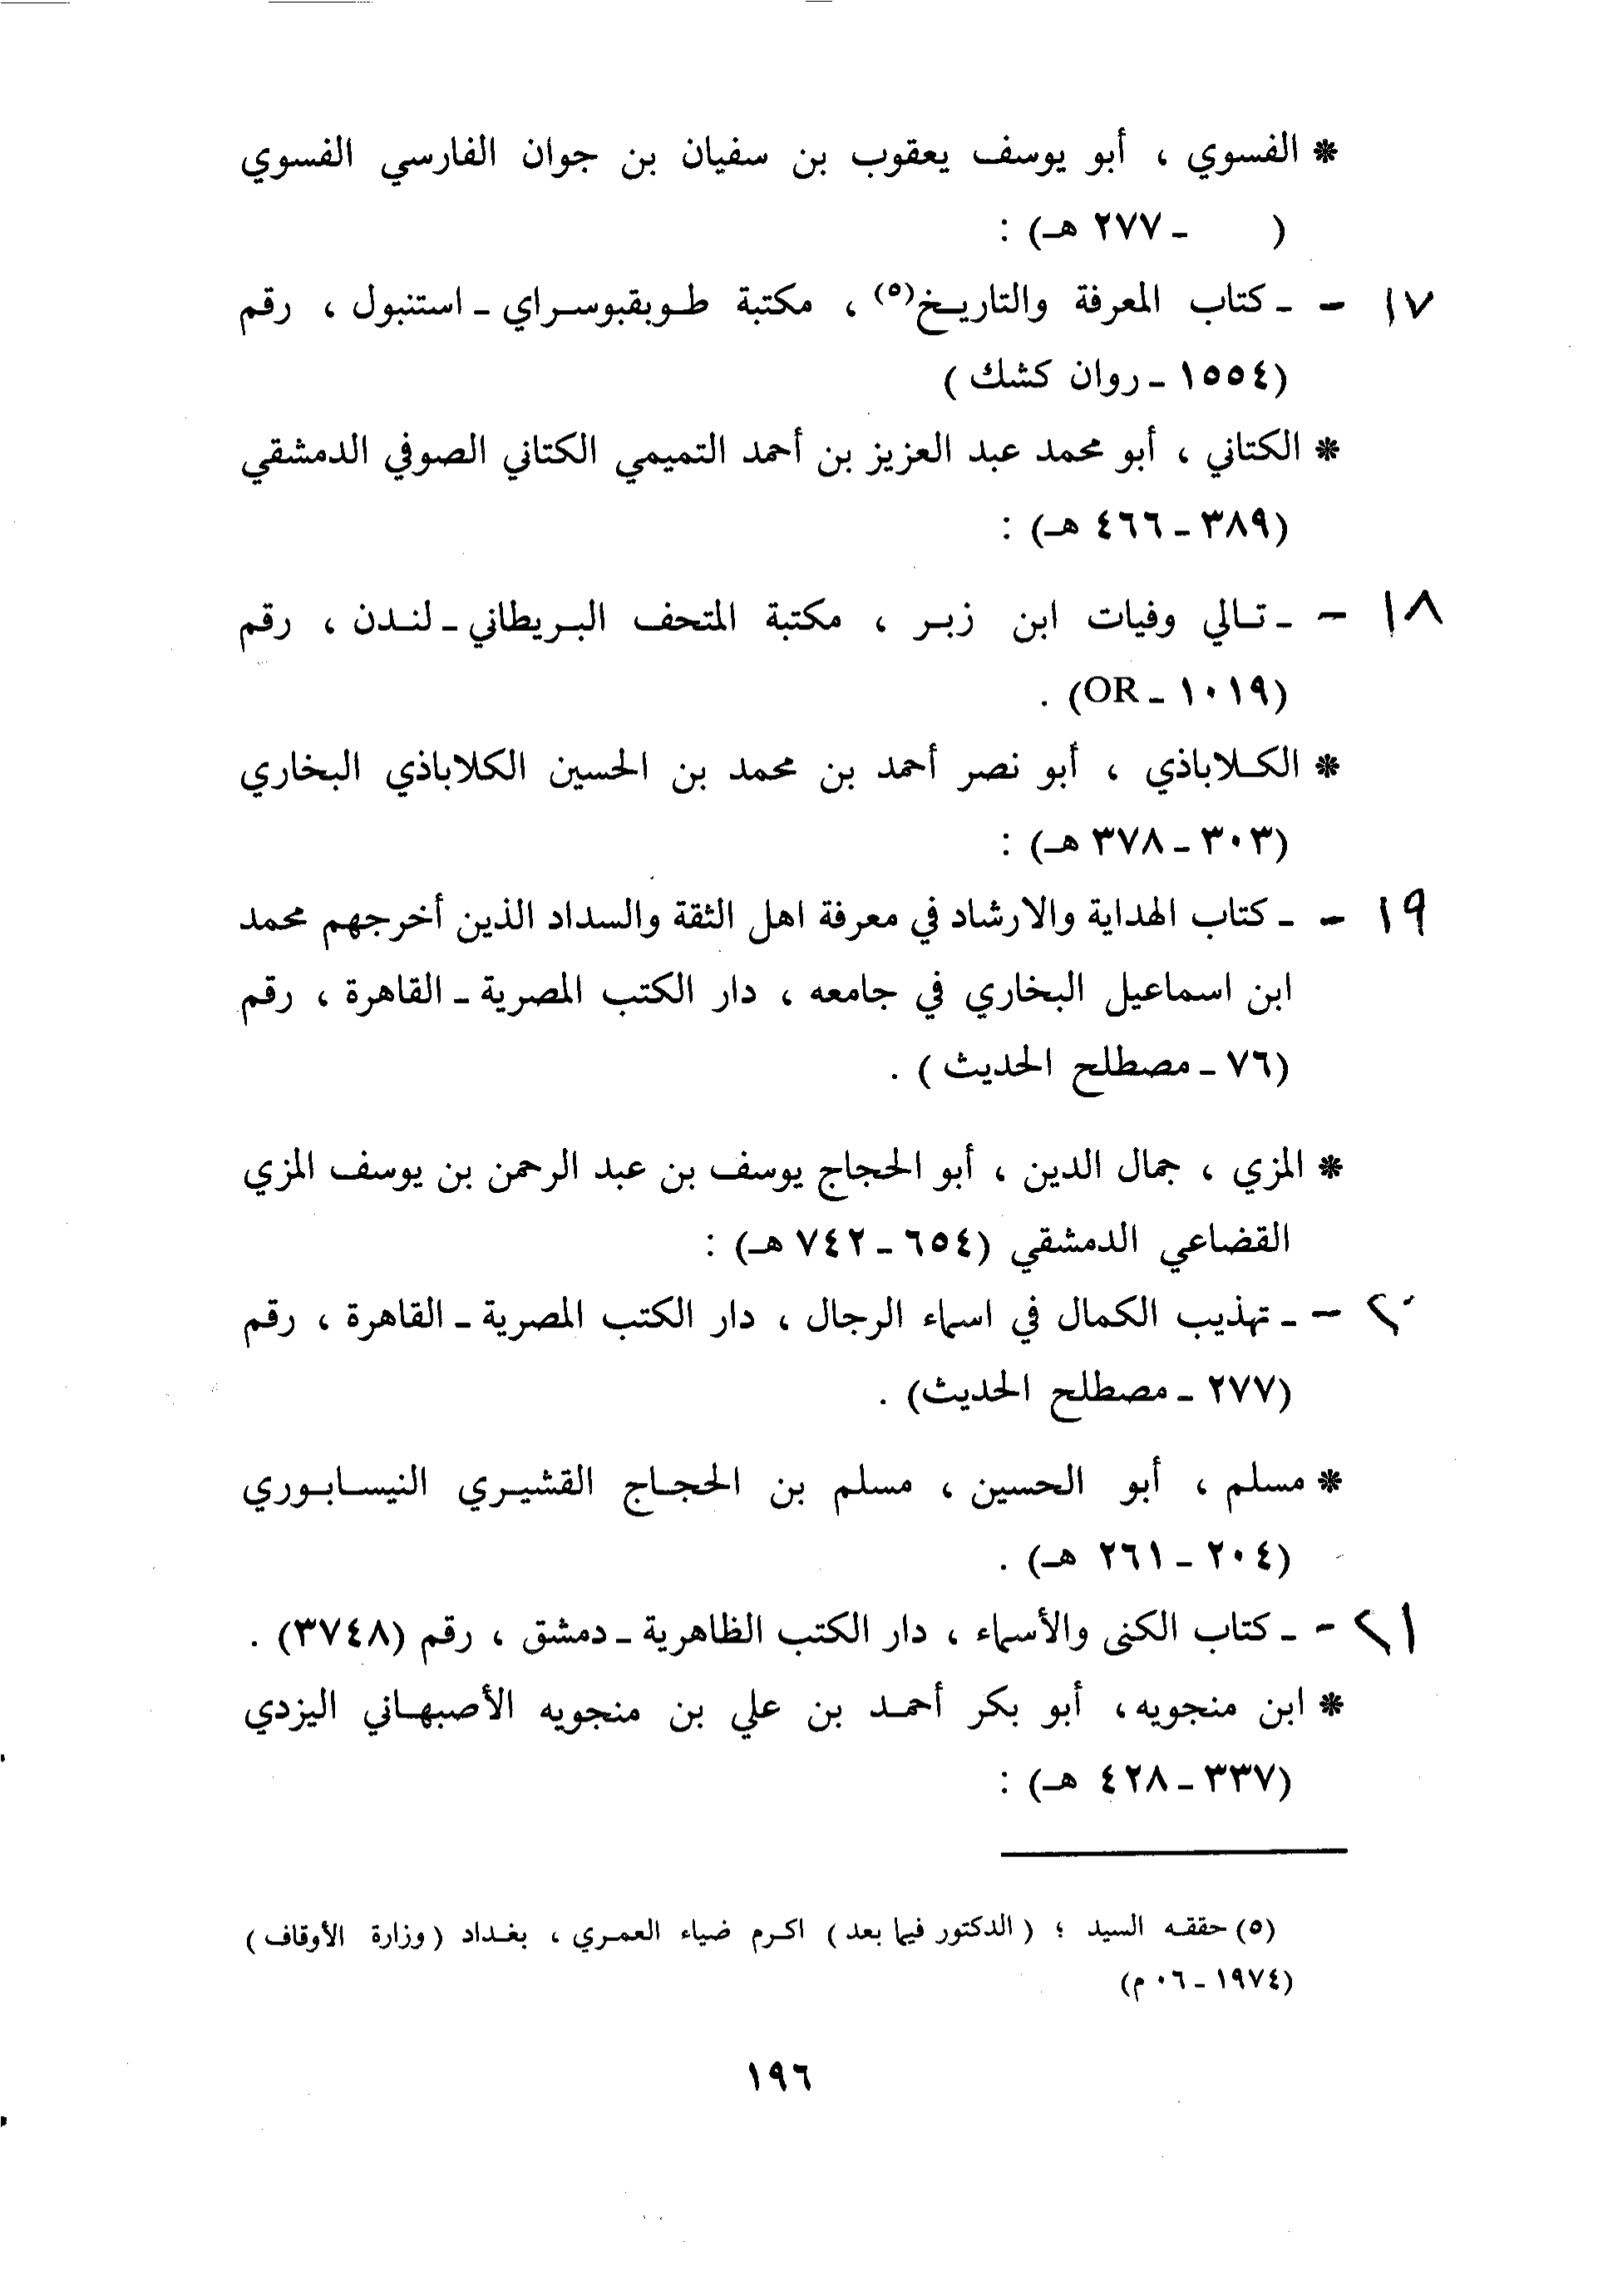 * الفسوي ، أبو يوسف يعقوب بن سفيان بن جوان الفارسي الفسوي
( ـ ٢٧٧ هـ) :
١٧ - ـ كتاب المعرفة والتاريخ(٥) ، مكتبة طوبقبوسراي ـ استنبول ، رقم
(١٥٥٤ ـ روان كشك )
* الكتاني ، أبو محمد عبد العزيز بن أحمد التميمي الكتاني الصوفي الدمشقي
(٣٨٩ ـ ٤٦٦ هـ) :
١٨ - ـ تالي وفيات ابن زبر ، مكتبة المتحف البريطاني ـ لندن ، رقم
(١٠١٩ ـ OR) .
* الكلاباذي ، أبو نصر أحمد بن محمد بن الحسين الكلاباذي البخاري
(٣٠٣ ـ ٣٧٨ هـ) :
١٩ - ـ كتاب الهداية والارشاد في معرفة اهل الثقة والسداد الذين أخرجهم محمد
ابن اسماعيل البخاري في جامعه ، دار الكتب المصرية ـ القاهرة ، رقم
(٧٦ ـ مصطلح الحديث ) .
* المزي ، جمال الدين ، أبو الحجاج يوسف بن عبد الرحمن بن يوسف المزي
القضاعي الدمشقي (٦٥٤ ـ ٧٤٢ هـ) :
٢٠ - ـ تهذيب الكمال في اسماء الرجال ، دار الكتب المصرية ـ القاهرة ، رقم
(٢٧٧ ـ مصطلح الحديث) .
* مسلم ، أبو الحسين ، مسلم بن الحجاج القشيري النيسابوري
(٢٠٤ ـ ٢٦١ هـ) .
٢١ - ـ كتاب الكنى والأسماء ، دار الكتب الظاهرية ـ دمشق ، رقم (٣٧٤٨) .
* ابن منجويه، أبو بكر أحمد بن علي بن منجويه الأصبهاني اليزدي
(٣٣٧ ـ ٤٢٨ هـ) :
(٥) حققه السيد ؛ ( الدكتور فيما بعد ) اكرم ضياء العمري ، بغداد ( وزارة الأوقاف )
(١٩٧٤ ـ ٠٦ م)
١٩٦